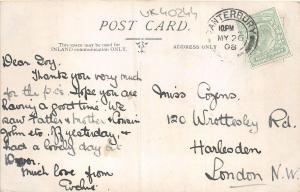 UK40244
POST CARD.
This space may be used for
INLAND communication ONLY.
ADDRESS ONLY
CANTERBURY
10.PM
MY 26
08
Dear Dory.
Thank you very much
for the p.c. Hope you are
having a good time. We
saw Father & Mother & Cousin
John etc. yesterday &
had a lovely day at
Dover.
Much love from
Evelyn
Miss Cozens,
120 Wrottesley Rd.
Harlesden
London N.W.